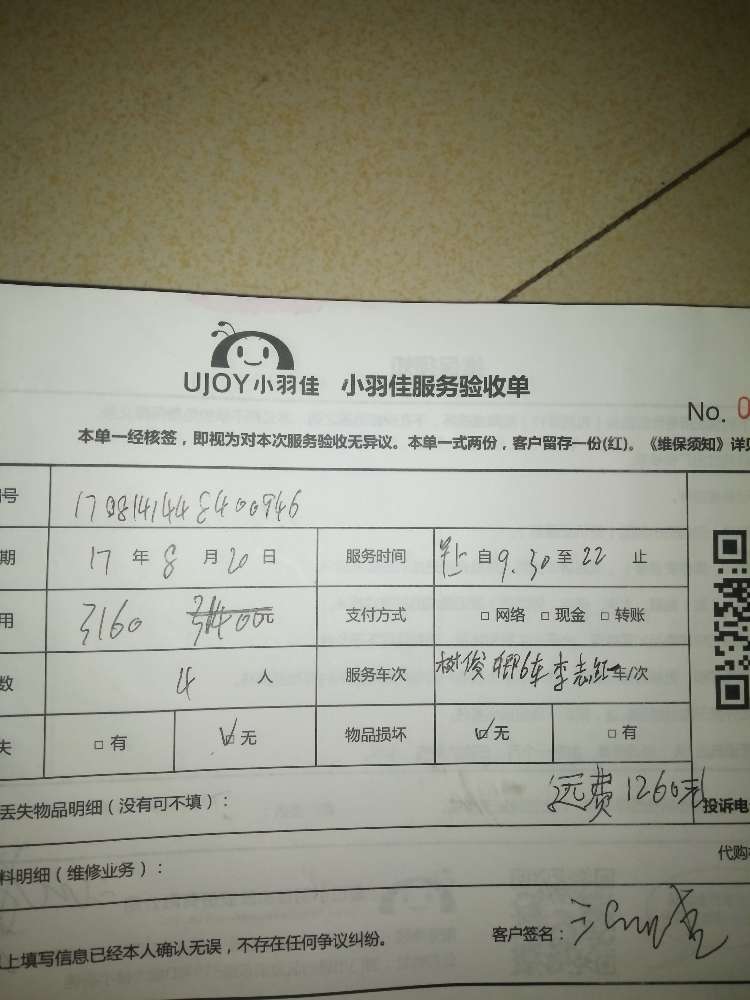 UJOY小羽佳 小羽佳服务验收单
No. 0
本单一经核签，即视为对本次服务验收无异议。本单一式两份，客户留存一份(红)。《维保须知》详见
号
期 17 年 8 月 20 日 服务时间 自 9.30 至 22 止
用 3160 支付方式 □ 网络 □ 现金 □ 转账
数 4 人 服务车次 车/次
失 □ 有 □ 无 物品损坏 □ 无 □ 有
丢失物品明细（没有可不填）： 远费1260元 投诉电
代购
料明细（维修业务）：
上填写信息已经本人确认无误，不存在任何争议纠纷。 客户签名：